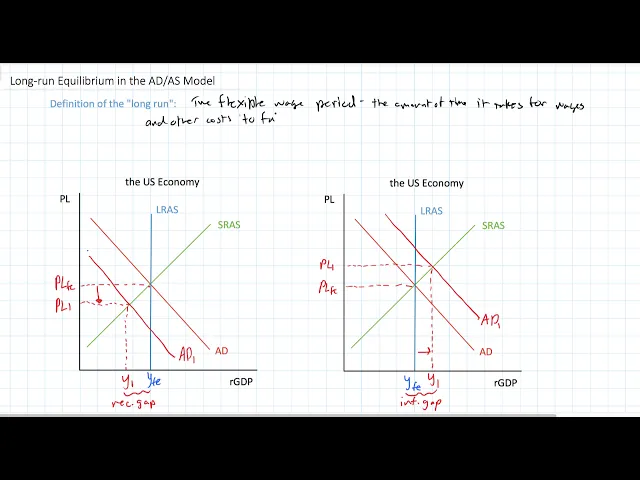 Long-run Equilibrium in the AD/AS Model
Definition of the "long run": The flexible wage period - the amount of time it takes for wages
and other costs to
the US Economy
PL
LRAS
SRAS
PLfe
PL1
AD1
AD
y1 yfe
rGDP
rec. gap
the US Economy
PL
LRAS
SRAS
PL1
PLfe
AD1
AD
yfe y1
rGDP
inf. gap